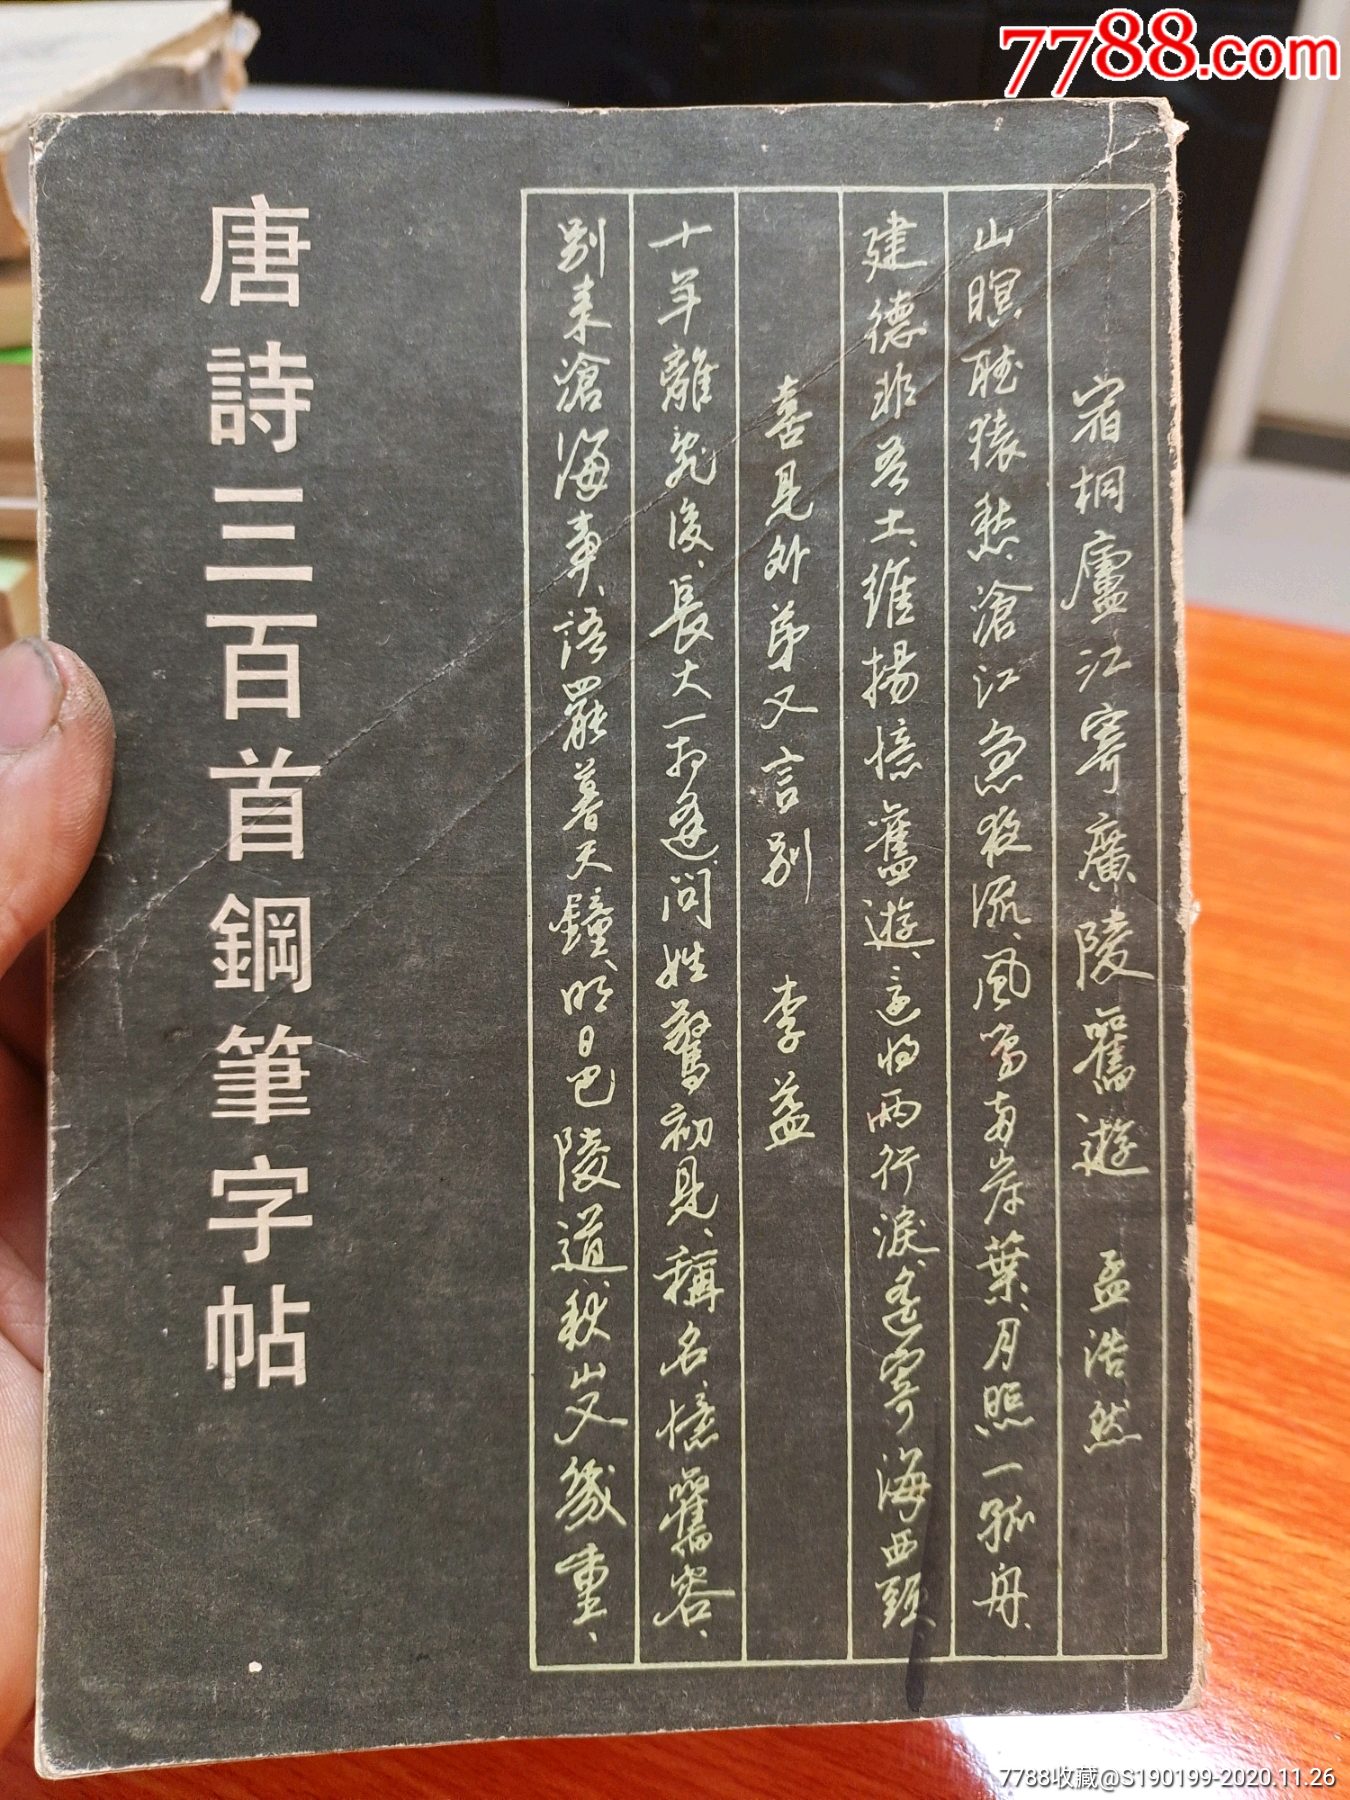 7788.com
宿桐廬江寄廣陵舊遊 孟浩然
山暝聽猿愁、滄江急夜流、風鳴兩岸葉、月照一孤舟、
建德非吾土、維揚憶舊遊、還將兩行淚、遙寄海西頭
喜見外弟又言別 李益
十年離亂後、長大一相逢、問姓驚初見、稱名憶舊容、
別來滄海事、語罷暮天鐘、明日巴陵道、秋山又幾重、
唐詩三百首鋼筆字帖
7788收藏@S190199-2020.11.26